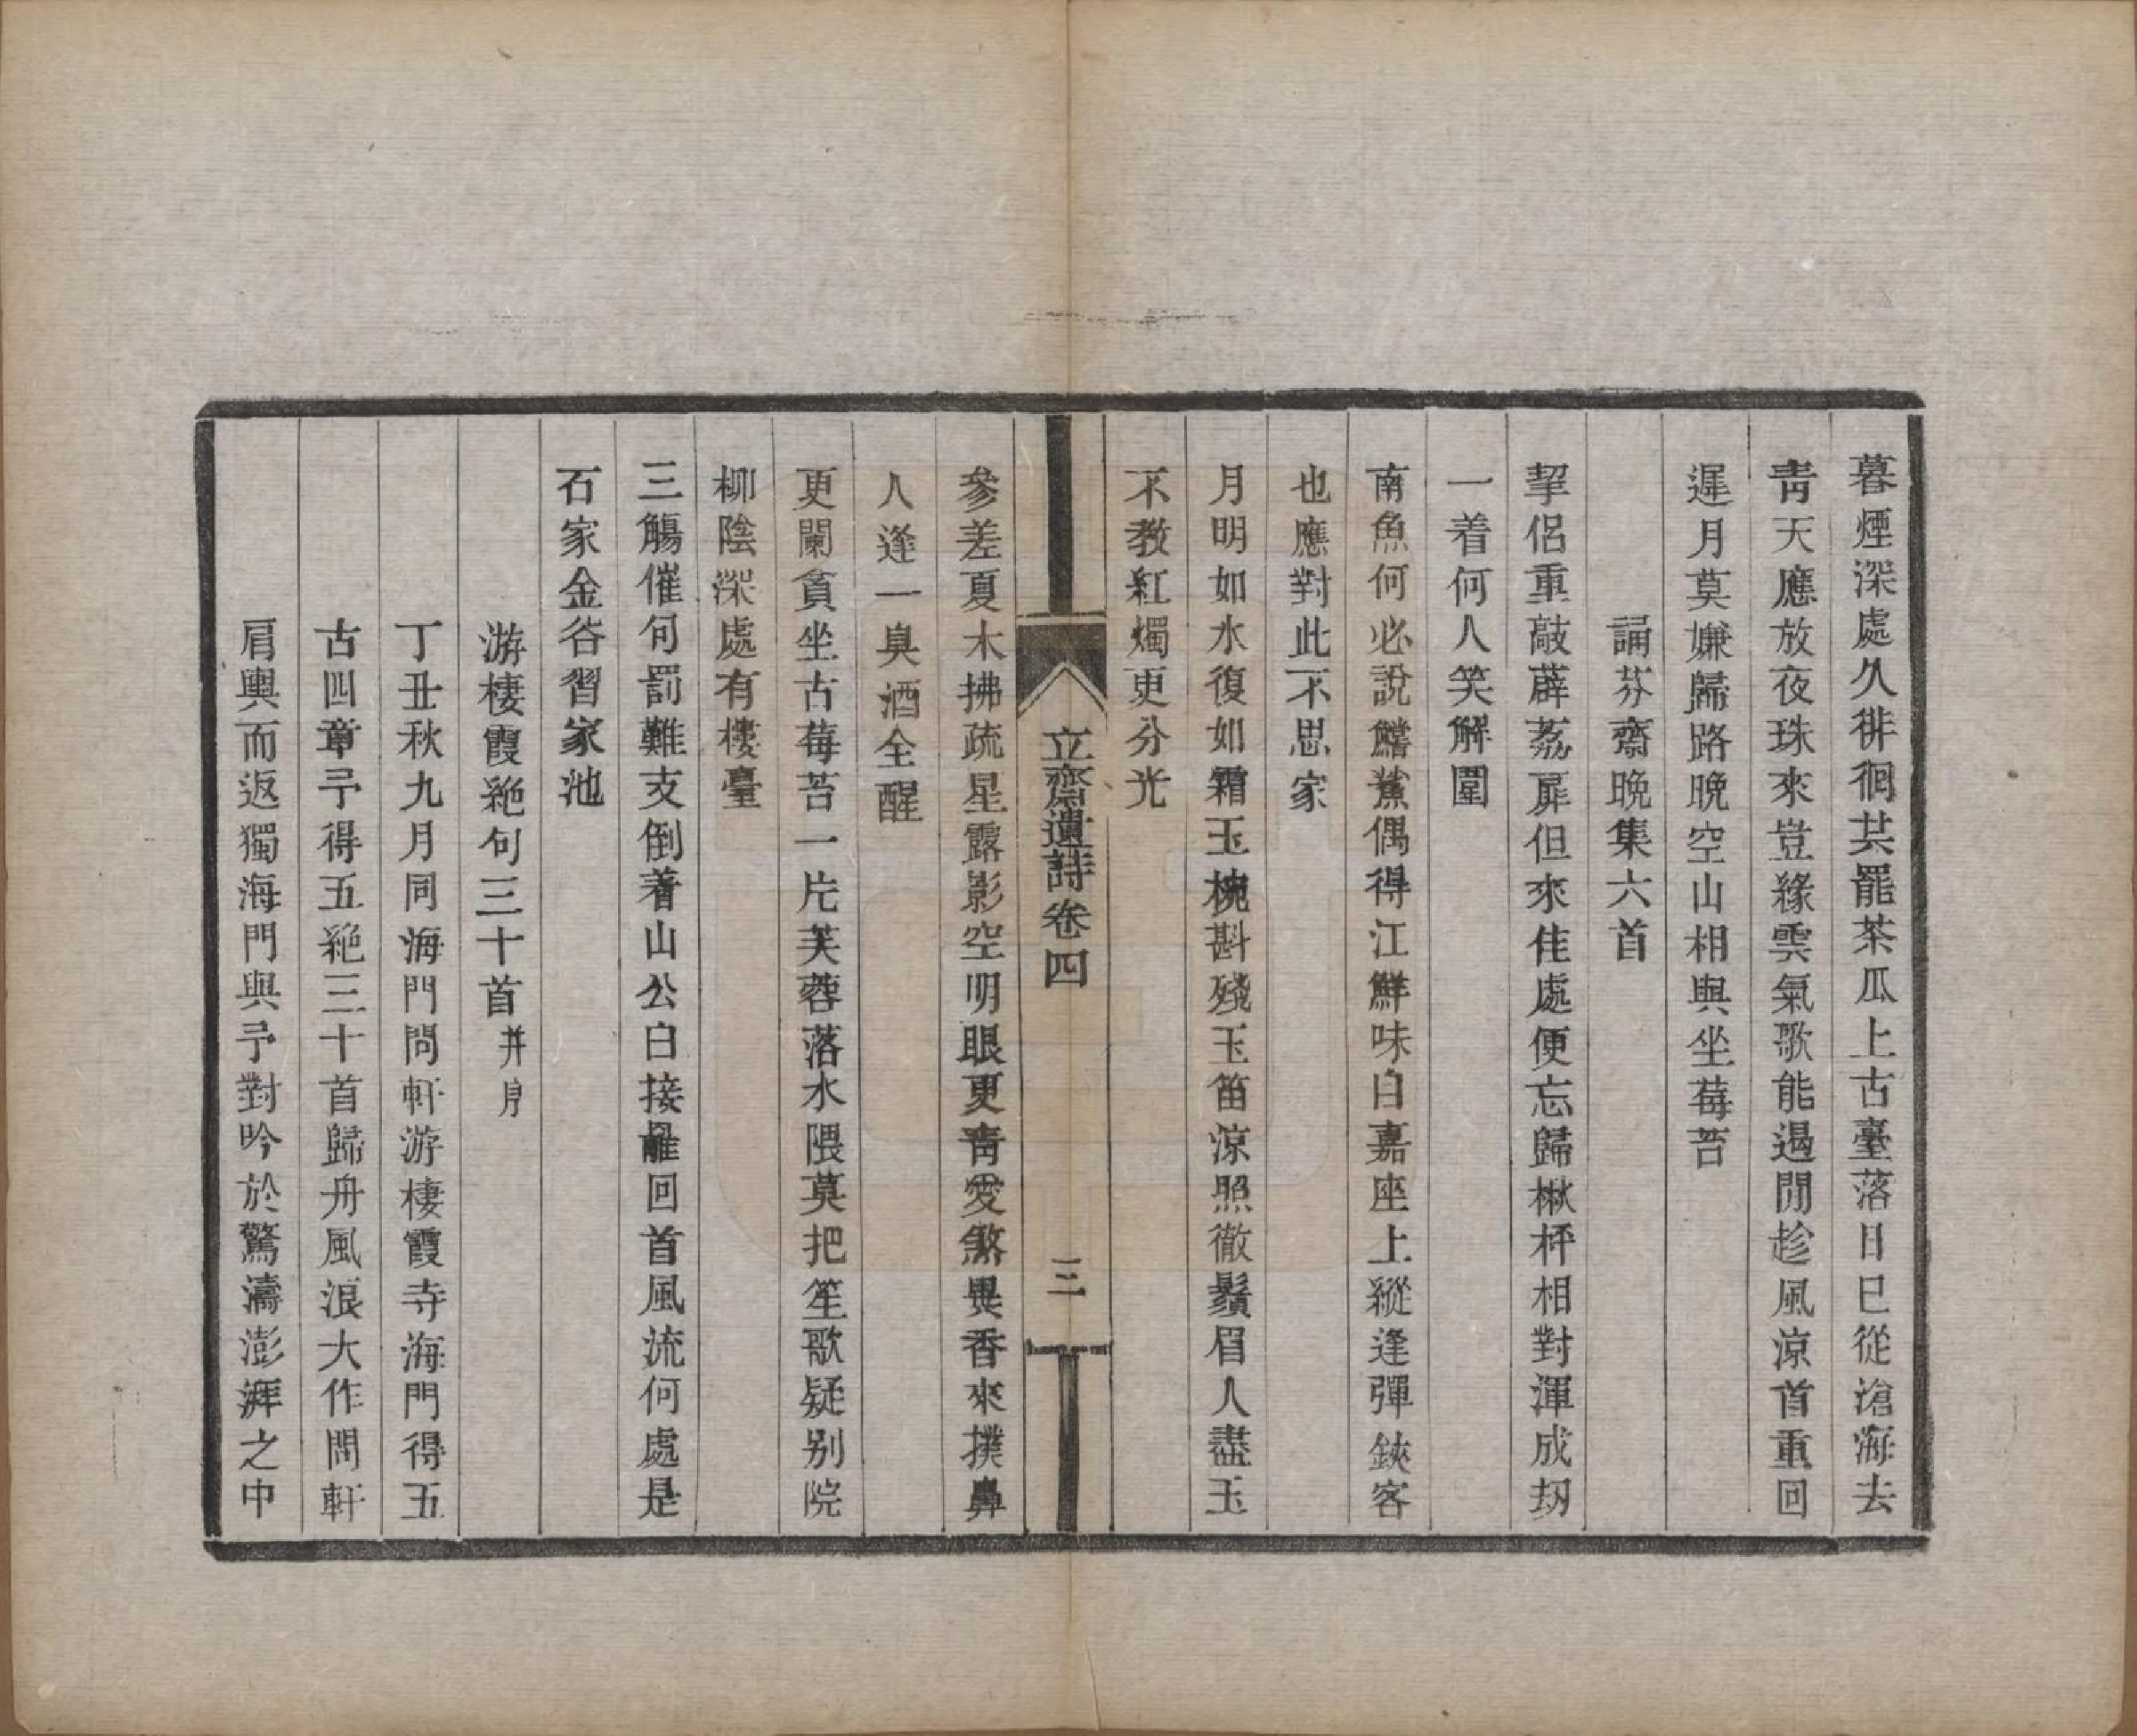 暮煙深處久徘徊其罷茶瓜上古臺落日已從滄海去
青天應放夜珠來豈緣雲氣歌能遏閒趁風涼首重回
遲月莫嫌歸路晚空山相與坐莓苔
誦芬齋晚集六首
挈侶重敲薜荔扉但來佳處便忘歸楸枰相對渾成劫
一着何人笑解圍
南魚何必說鱨鯊偶得江鮮味自嘉座上縱逢彈鋏客
也應對此不思家
月明如水復如霜玉椀斟殘玉笛涼照徹鬚眉人盡玉
不教紅燭更分光
立齋遺詩卷四
三
參差夏木拂疏星露影空明眼更青愛煞異香來撲鼻
人逢一臭酒全醒
更闌貪坐古莓苔一片芙蓉落水隈莫把笙歌疑別院
柳陰深處有樓臺
三觴催句罰難支倒著山公白接䍦回首風流何處是
石家金谷習家池
游棲霞絕句三十首并序
丁丑秋九月同海門問軒游棲霞寺海門得五
古四章予得五絕三十首歸舟風浪大作問軒
肩輿而返獨海門與予對吟於驚濤澎湃之中